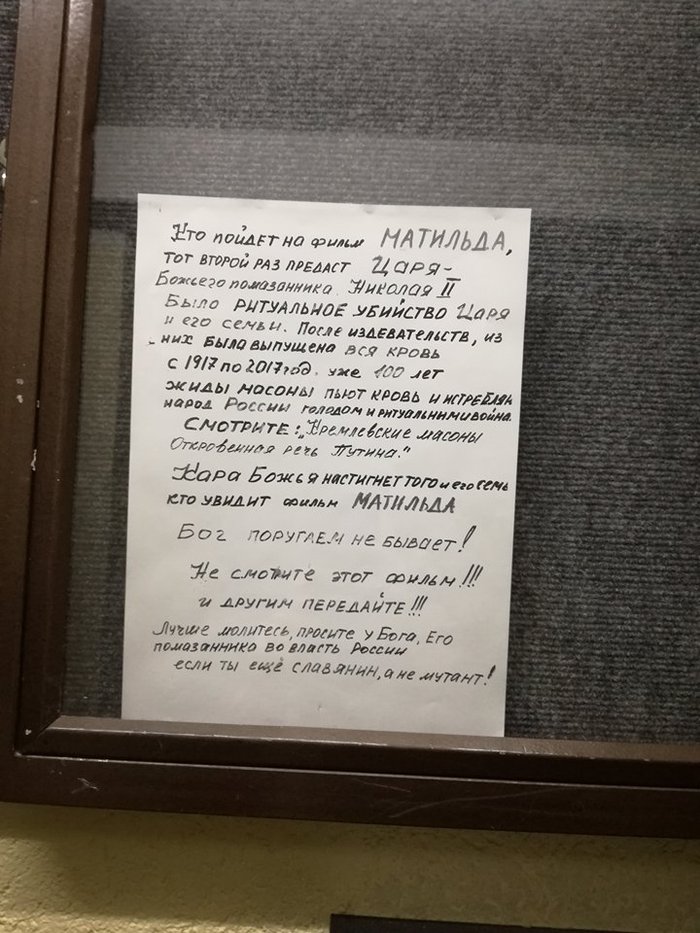 Кто пойдет на фильм МАТИЛЬДА,
тот второй раз предаст Царя-
Божьего помазанника Николая II
Было ритуальное убийство Царя
и его семьи. После издевательств, из
них была выпущена вся кровь
с 1917 по 2017 год. уже 100 лет
жиды масоны пьют кровь и истреблян
народ России голодом и ритуальнимивойна.
Смотрите: „Кремлевские масоны
Откровенная речь Путина."
Кара Божья настигнет того и его семь
кто увидит фильм МАТИЛЬДА
Бог поругаем не бывает!
Не смотите этот фильм!!!
и другим передайте!!!
Лучше молитесь, просите у Бога, Его
помазанника во власть России
если ты ещё славянин, а не мутант!